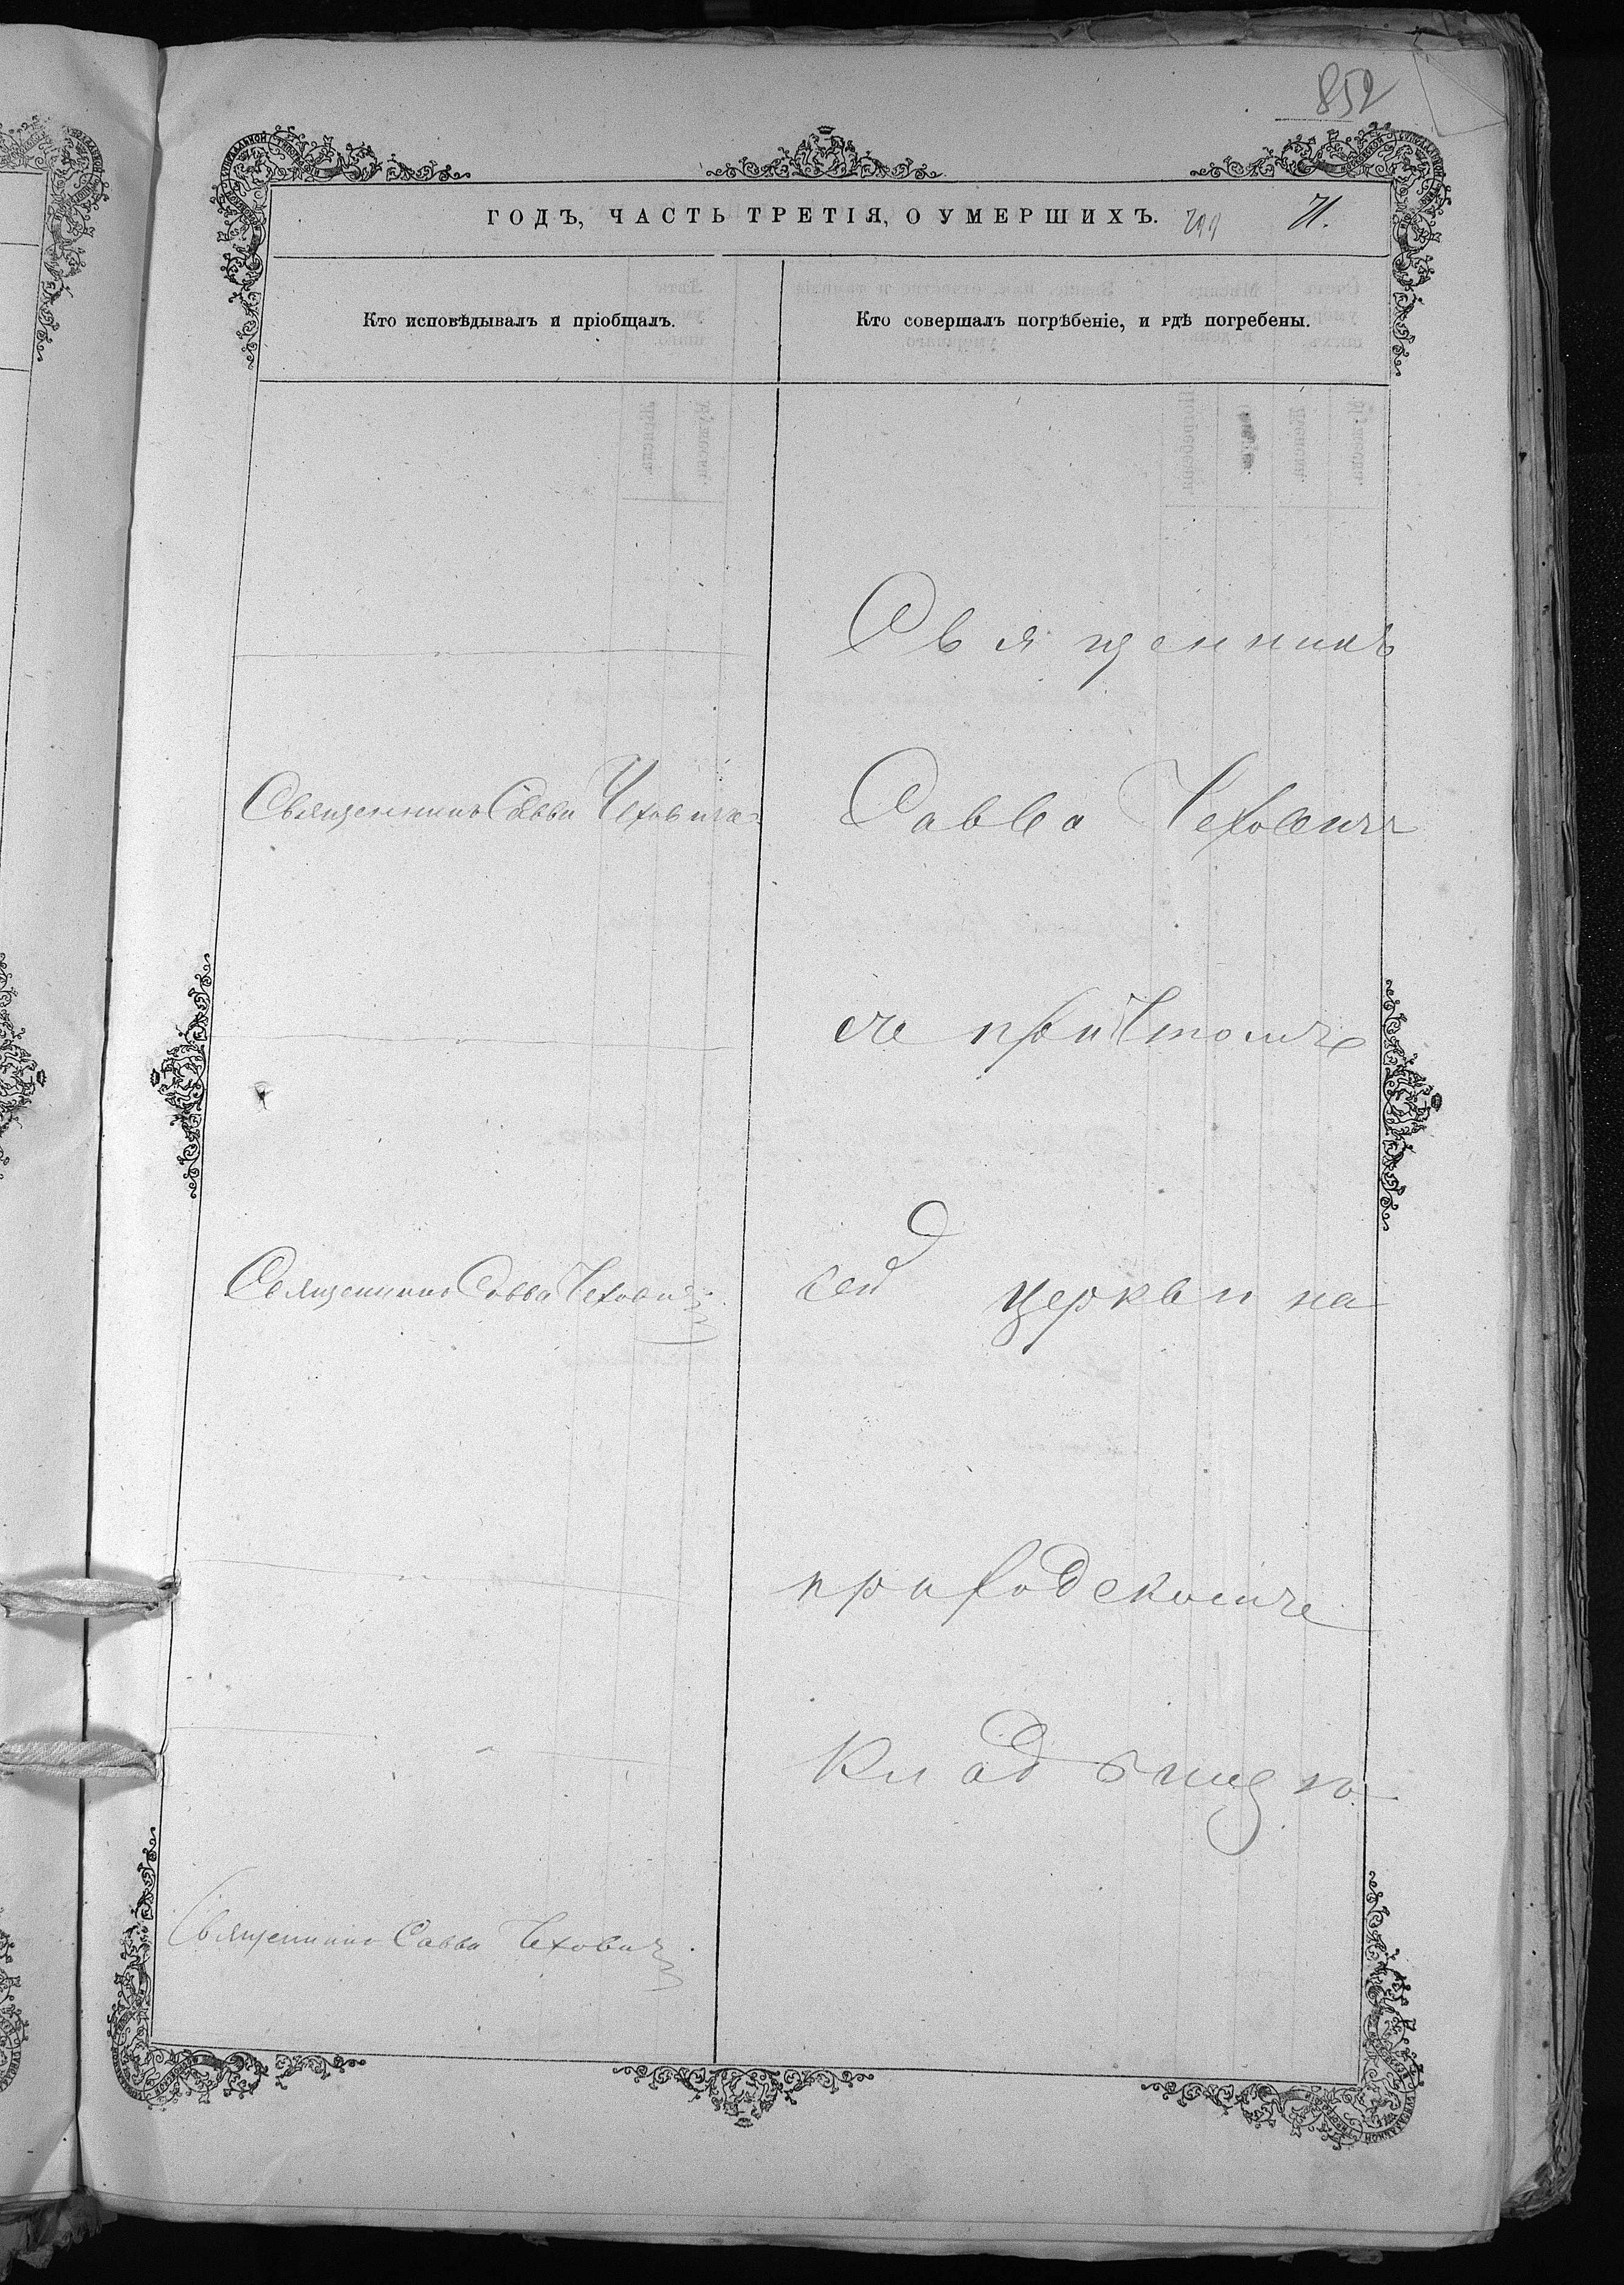 852
ГОДЪ, ЧАСТЬ ТРЕТІЯ, О УМЕРШИХЪ. 71.
Кто исповѣдывалъ и пріобщалъ.
Кто совершалъ погрѣбеніе, и гдѣ погребены.
Священникъ Савва Чеховичъ
Священникъ Савва Чеховичъ
Священникъ Савва Чеховичъ
Священникъ
Савва Чеховичъ
съ причтомъ
сей церкви на
приходскомъ
кладбищѣ